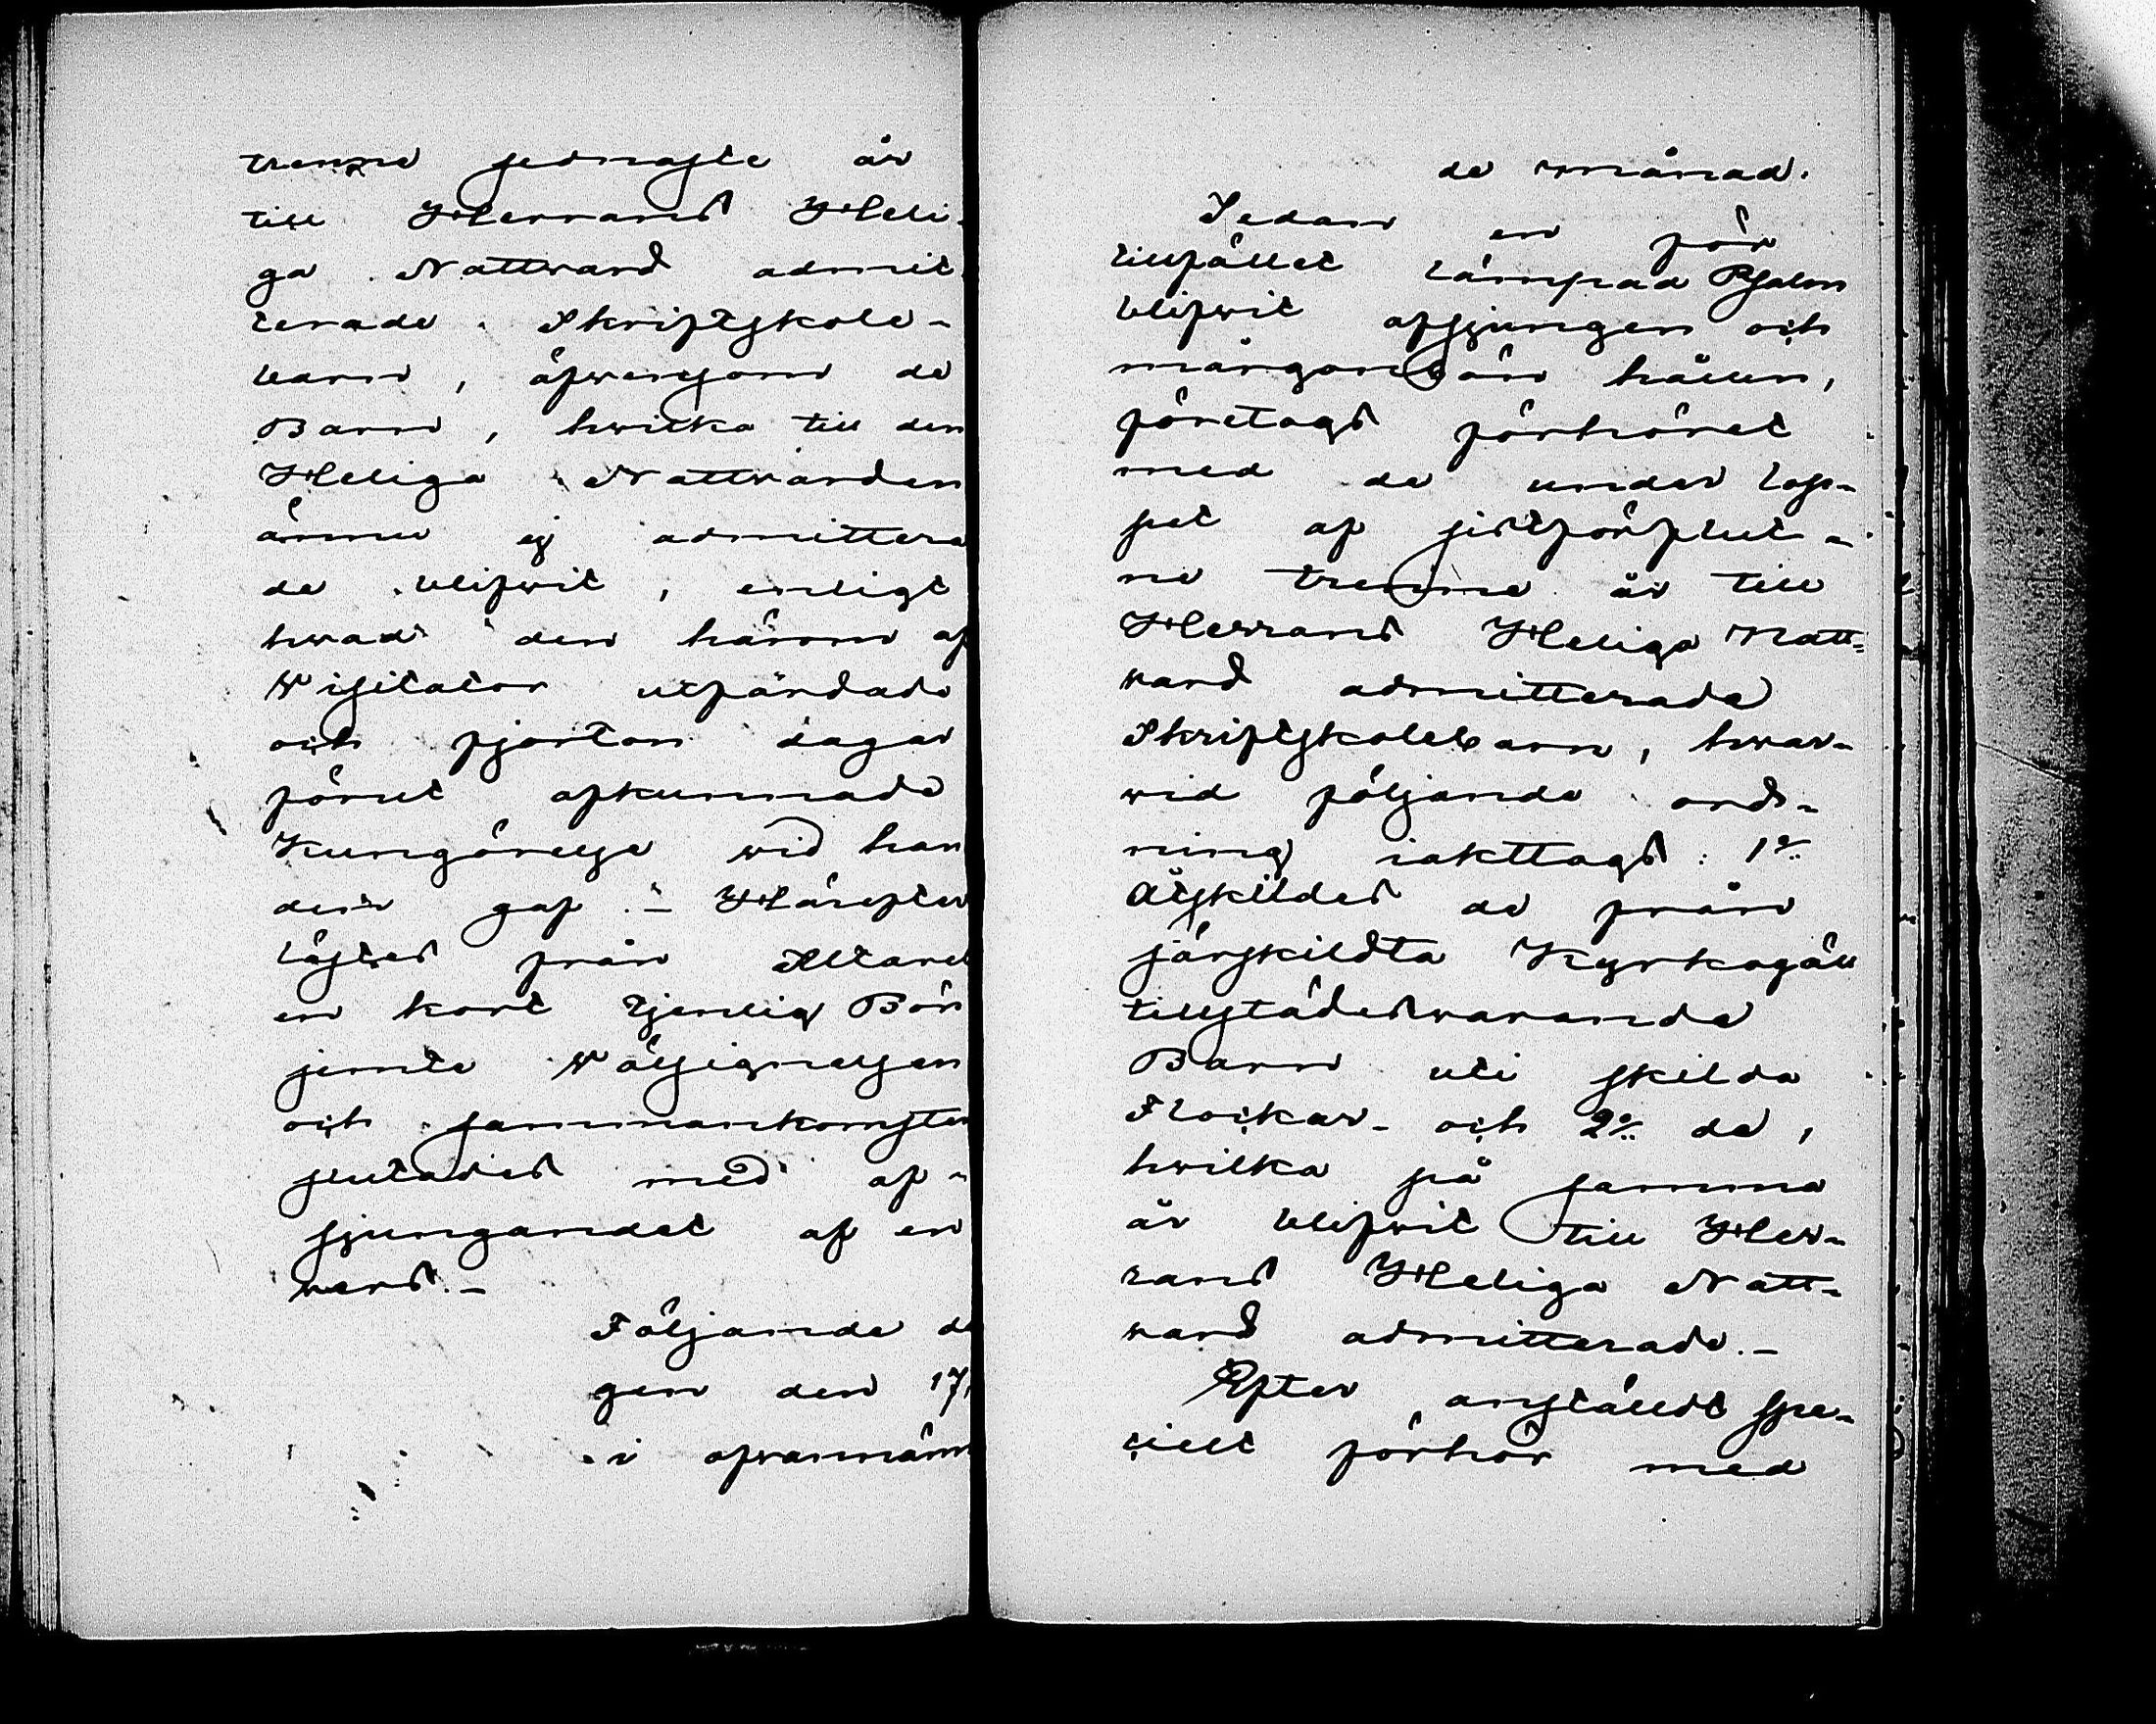 trenne sednaste år
till Herrans Heli-
ga Nattvard admit
terade Skriftskole-
barn, äfvensom de
Barn, hwilka till den
Heliga Nattvarden
ännu ej admittera
de blifvit, enligt
hwad den härom af
Visitator utfärdade
och fjorton dagar
förut afkunnade
Kungörelse wid han
den gaf. - Härefter
lästes från Altaret
en kort tjenlig Bön
jemte Välsignelsen
och sammankomsten
slutades med af-
sjungandet af en
vers. -
Följande da
gen den 17,
i ofvannämn
de månad.
Sedan en för
tillfället lämpad Psalm
blifvit afsjungen och
morgonbön hållen,
företogs förhöret
med de under lop-
pet af sistförflut-
ne trenne år till
Herrans Heliga Natt-
vard admitterade
Skriftskolebarn, hwar-
vid följande ord-
ning iakttogs: 1o
Åtskildes de från
särskildta Kyrkogäll
tillstädesvarande
Barn uti skilda
Flockar - och 2o de,
hwilka på samma
år blifvit till Her-
rans Heliga Natt-
vard admitterade. -
Efter anstäldt spe-
cielt förhör med